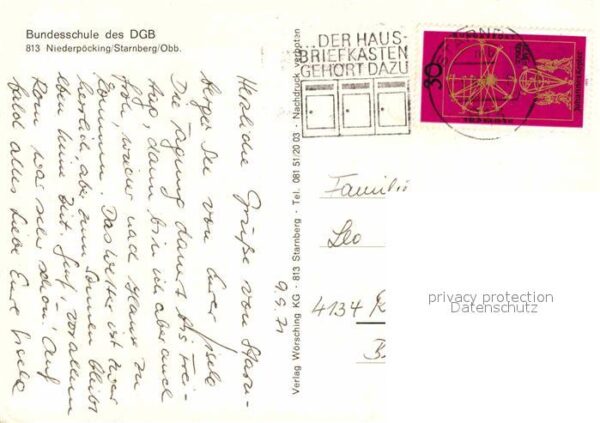 Bundesschule des DGB
813 Niederpöcking/Starnberg/Obb.
Herzliche Grüße vom Starn-
berger See von Eurer Gisela
Die Tagung dauert bis Frei-
tag, dann bin ich aber auch
froh, wieder nach Hause zu
kommen. Das Wetter ist zwar
herrlich, aber zum Sonnen bleibt
eben keine Zeit. vor allem
Rom war sehr schön! Auf
bald alles Liebe Eure Gisela
9.5.71
Verlag Wörsching KG · 813 Starnberg · Tel. 081 51/20 03 · Nachdruck verboten
...DER HAUS-
BRIEFKASTEN
GEHÖRT DAZU
30
DEUTSCHE BUNDESPOST
Johannes Kepler
Famili
Leo
4134
privacy protection
Datenschutz